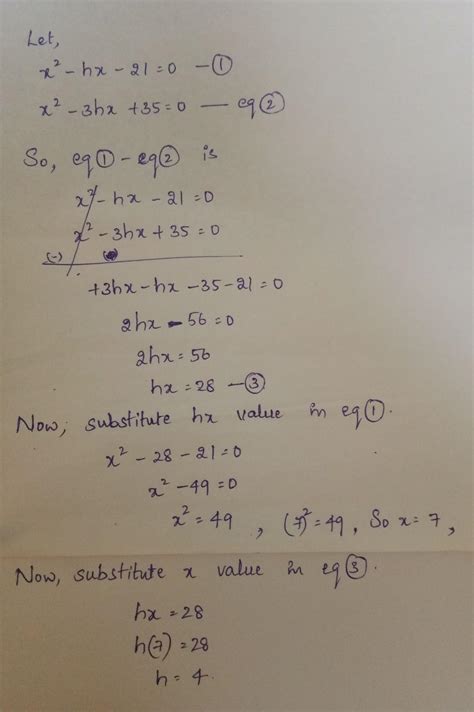 Let,
x² - hx - 21 = 0 — ①
x² - 3hx + 35 = 0 — eq ②
So, eq ① - eq ② is
x² - hx - 21 = 0
x² - 3hx + 35 = 0
(-)
+3hx - hx - 35 - 21 = 0
2hx - 56 = 0
2hx = 56
hx = 28 — ③
Now, substitute hx value in eq ①.
x² - 28 - 21 = 0
x² - 49 = 0
x² = 49 , (7)² = 49, So x = 7,
Now, substitute x value in eq ③.
hx = 28
h(7) = 28
h = 4.